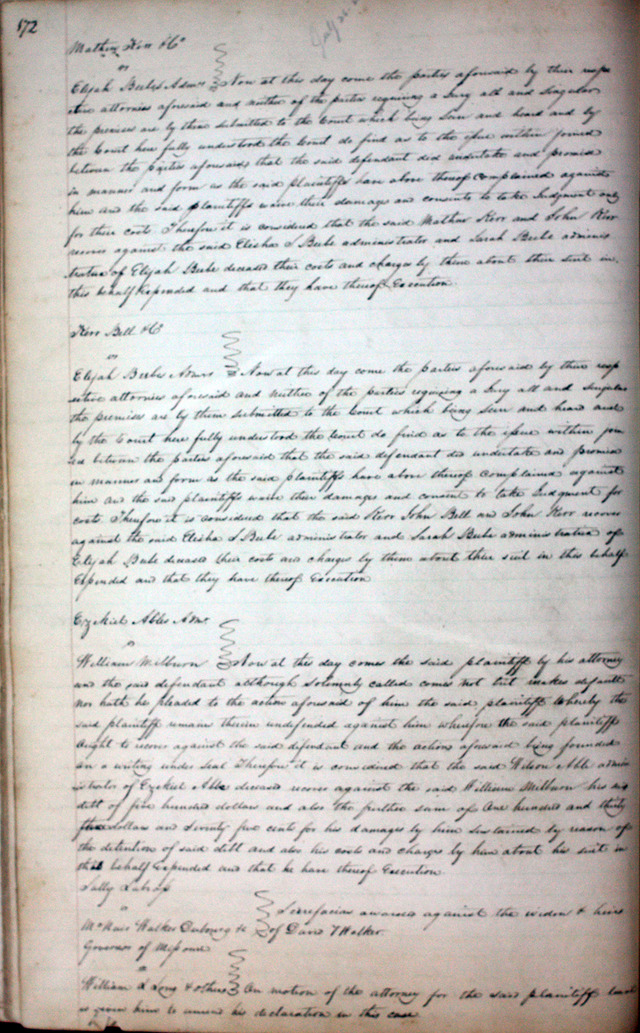 172
July 26
Mathew Kerr & Co
vs
Elijah Beebe Admrs Now at this day come the parties aforesaid by their respe
ctive attornies aforesaid and neither of the parties requiring a Jury all and Singular
the premises are by them submitted to the Court which being seen and heard and by
the Court here fully understood the Court do find as to the issue within joined
between the parties aforesaid that the said defendant did undertake and promise
in manner and form as the said plaintiffs have above thereof complained against
him and the said plaintiffs waive their damages and consents to take Judgment only
for their costs Therefore it is considered that the said Mathew Kerr and John Kerr
recover against the said Elisha S Beebe administrator and Sarah Beebe adminis
tratrix of Elijah Beebe deceased their costs and charges by them about their suit in
this behalf Expended and that they have thereof Execution
Kerr Bell & Co
vs
Elijah Beebe Admrs Now at this day come the parties aforesaid by their resp
ective attornies aforesaid and neither of the parties requiring a Jury all and Singular
the premises are by them submitted to the Court which being seen and heard and
by the Court here fully understood the Court do find as to the issue within join
ed between the parties aforesaid that the said defendant did undertake and promise
in manner and form as the said plaintiffs have above thereof complained against
him and the said plaintiffs waive their damages and consent to take Judgment for
costs Therefore it is considered that the said Kerr John Bell and John Kerr recover
against the said Elisha S Beebe administrator and Sarah Beebe administratrix of
Elijah Beebe deceased their costs and charges by them about their suit in this behalf
Expended and that they have thereof Execution
Ezekiel Ables Admr
vs
William Milburn Now at this day comes the said plaintiff by his attorney
and the said defendant although solemnly called comes not but makes default
nor hath he pleaded to the action aforesaid of him the said plaintiff Whereby the
said plaintiff remains therein undefended against him wherefore the said plaintiff
Aught to recover against the said defendant and the actions aforesaid being founded
on a writing under seal Wherefore it is considered that the said Wilson Able admin
istrator of Ezekiel Able deceased recover against the said William Milburn his
debt of five hundred dollars and also the further sum of One hundred and thirty
five dollars and Seventy five cents for his damages by him sustained by reason of
the detention of said debt and also his costs and charges by him about his suit in
this behalf Expended and that he have thereof Execution
Sally
vs
McNair Walker &c Scirefacias awarded against the widow & heirs
of David Walker
Governor of Missouri
vs
William L Long & others On motion of the attorney for the said plaintiff leave
is given him to amend his declaration in this case